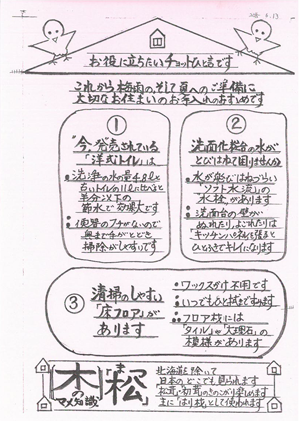 お役に立ちたいチョットひと言です
これから梅雨の、そして夏へのご準備に
大切なお住まいのお手入れのおすすめです
①
"今"発売されている
「洋式トイレ」は
洗浄の水の量4.8ℓと
古いトイレの
半分以下の
節水で効果大です
便器のフチがないので
奥まで手がとどき
掃除がしやすいです
②
洗面化粧台の水が
とびはねて困りませんか
水が飛びはねづらい
「ソフト水流」の
水栓があります
洗面台の壁が
ぬれたり、よごれたりは
「キッチンパネル」を張ると
ひとふきでキレイになります
③
清掃のしやすい
「床フロア」が
あります
ワックスがけ不用です
いつでもひと拭きですみます
フロア枝には
「タイル」や「大理石」の
模様があります
木のマメ知識
松
北海道を除いて
日本のどこでも見られます
主に「はり枝」として使われます